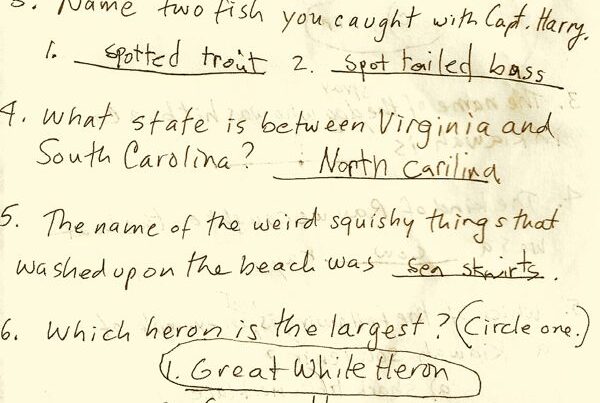 3. Name two fish you caught with Capt. Harry.
1. spotted trout 2. spot tailed bass
4. What state is between Virginia and
South Carolina? North carilina
5. The name of the weird squishy things that
washed up on the beach was sea skwirts.
6. Which heron is the largest? (Circle one.)
1. Great White Heron